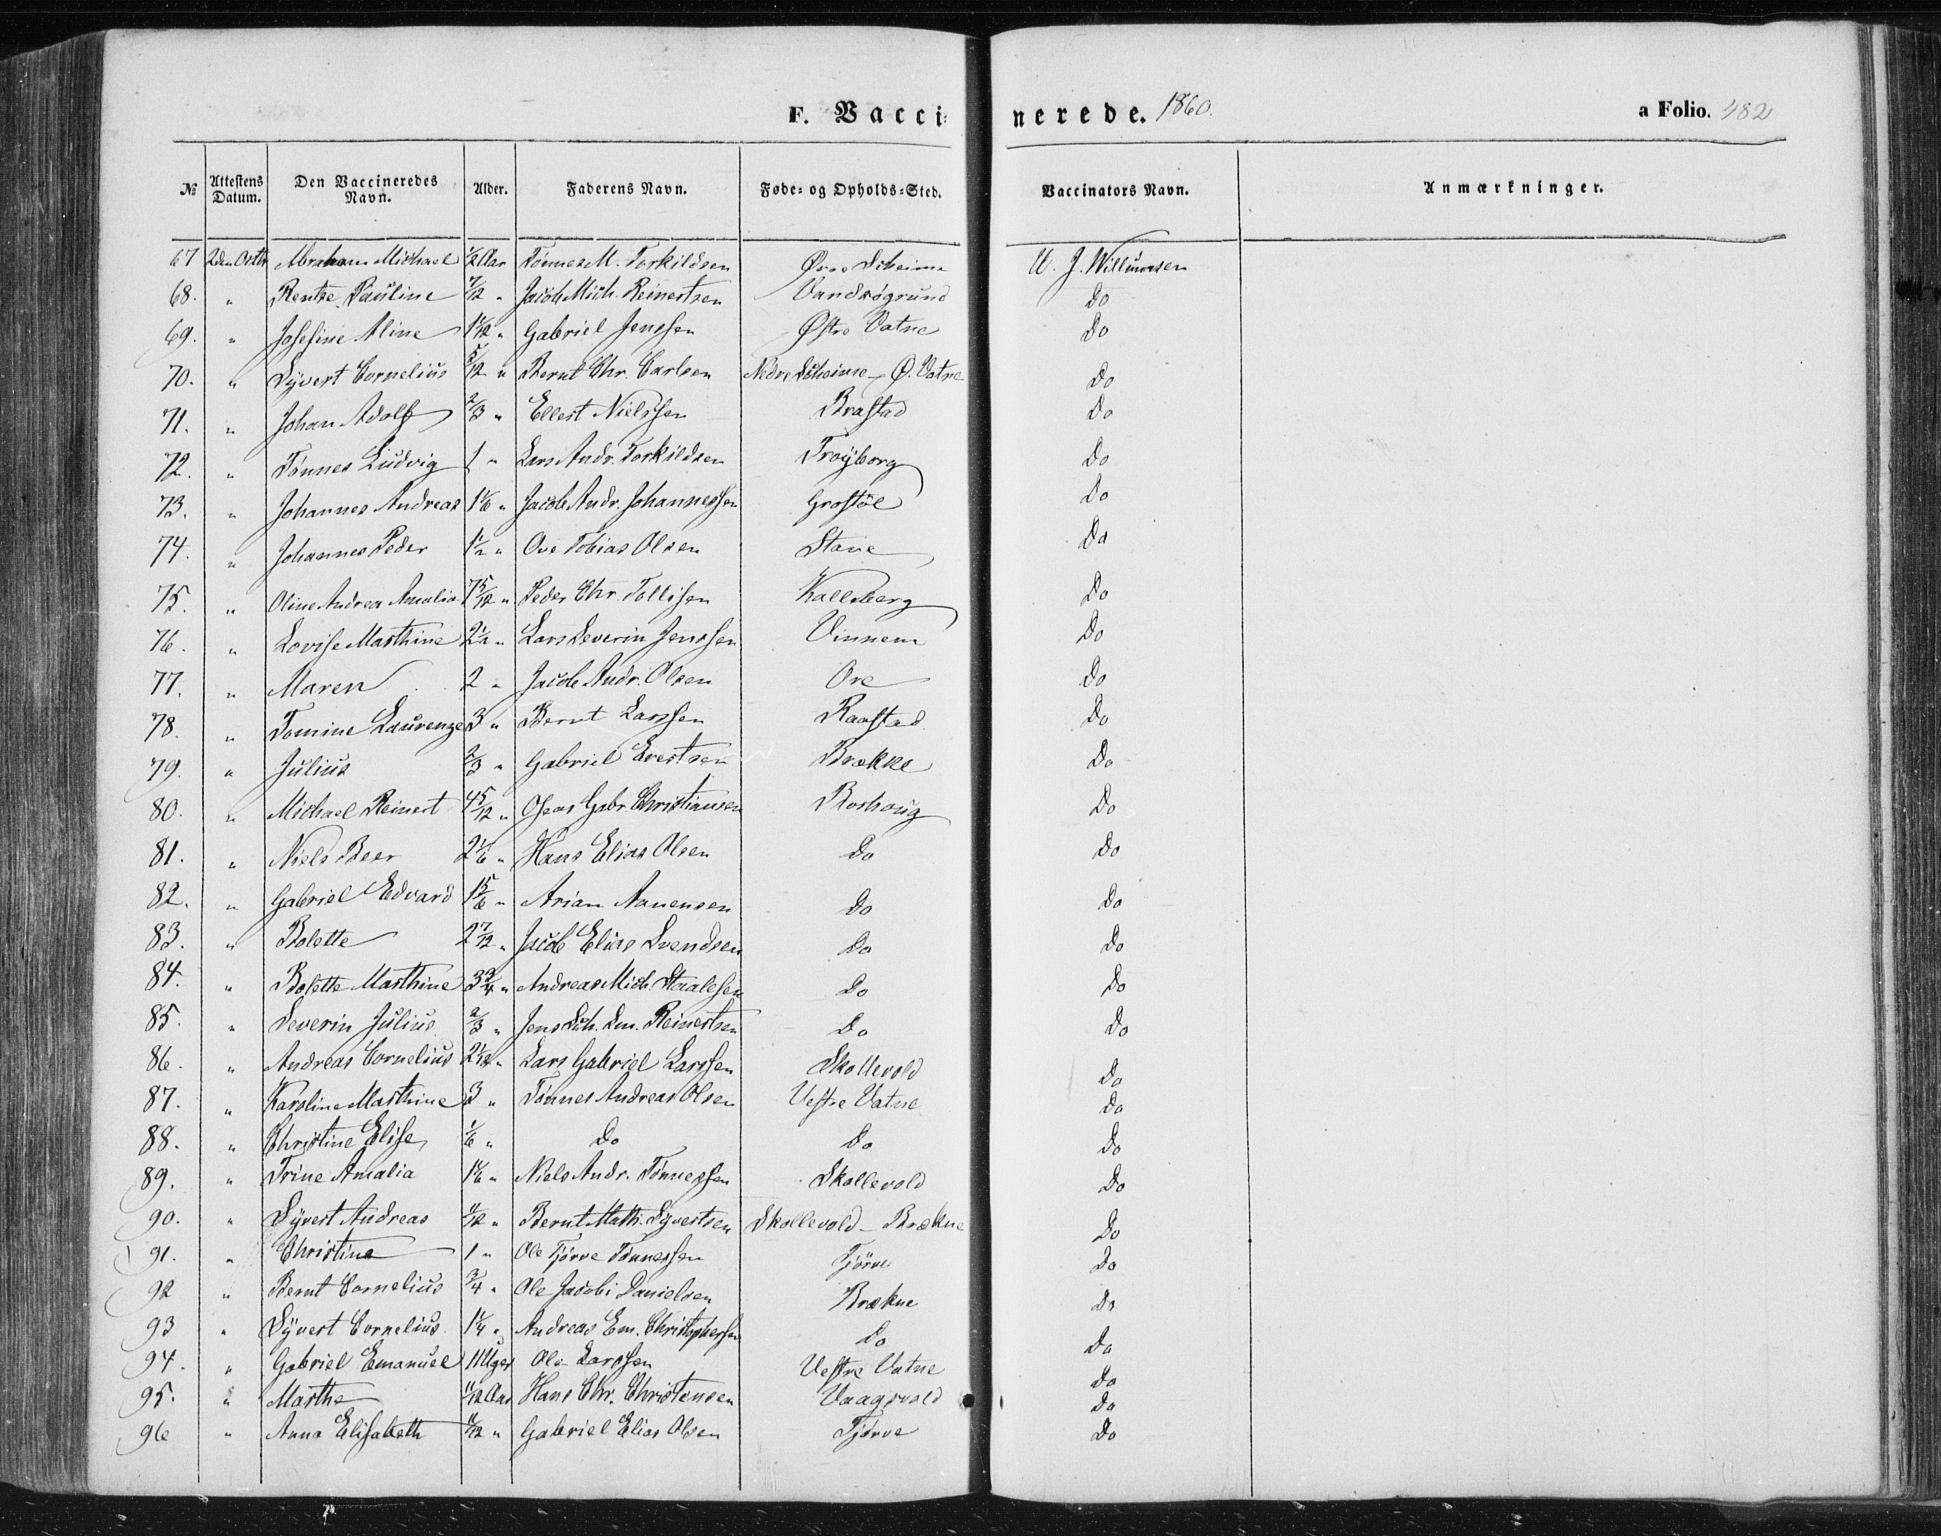 F. Vaccinerede. 1860. a Folio. 482
№ Attestens Datum. Den Vaccineredes Navn. Alder. Faderens Navn. Føde- og Opholds-Sted. Vaccinators Navn. Anmærkninger.
67 2den Octbr Abraham Michael 1/2 Aar Tönnes M. Torkildsen Øvre Scheime U. J. Willumsen
68. " Rentse Pauline 7/12 " Jacob Mich. Reinertsen Vandsøgrund Do
69. " Josefine Aline 1 1/12 " Gabriel Jenssen Østre Vatne Do
70. " Syvert Cornelius 5/12 " Bernt Chr. Carlsen Nedre Scheime - Ø. Vatne Do
71. " Johan Adolf 2/3 " Ellert Nielssen Brastad Do
72. " Tönnes Ludvig 1 " Lars Andr. Torkildsen Troyborg Do
73. " Johannes Andreas 1 1/6 " Jacob Andr. Johannessen Grostöl Do
74. " Johannes Peder 1 1/2 " Ove Tobias Olsen Stave Do
75. " Oline Andrea Amalia 7 5/12 " Peder Chr. Tollisen Kalleberg Do
76. " Lovise Marthine 2 1/2 " Lars Severin Jenssen Vinnem Do
77. " Maren 2 " Jacob Andr. Olsen Ore Do
78. " Tomine Laurenze 3 " Bernt Larssen Raastad Do
79. " Julius 2/3 " Gabriel Evertsen Brækne Do
80. " Michael Reinert 4 5/12 " Oseas Gabr. Christiansen Roshoug Do
81. " Niels Beer 2 1/6 " Hans Elias Olsen Do Do
82. " Gabriel Edvard 1 5/6 " Arian Aanensen Do Do
83. " Bolette 2 7/12 " Jacob Elias Svendsen Do Do
84. " Bolette Marthine 3 3/4 " Andreas Mich. Staalesen Do Do
85. " Severin Julius 2/3 " Jens Sch. Em. Reinertsen Do Do
86. " Andreas Cornelius 2 1/12 " Lars Gabriel Larssen Skollevold Do
87. " Karoline Marthine 3 " Tönnes Andreas Olsen Vestre Vatne Do
88. " Christine Elise 1/6 " Do Do Do
89. " Trine Amalia 1 1/6 " Niels Andr. Tönnessen Skollevold Do
90. " Syvert Andreas 1/12 " Bernt Math. Syvertsen Skollevold - Brækne Do
91. " Christine 1 " Ole Tjörve Tönnessen Tjörve Do
92 " Bernt Cornelius 3/4 " Ole Jacobi Danielsen Brækne Do
93 " Syvert Cornelius 1 1/4 " Andreas Em. Christophersen Do Do
94. " Gabriel Emanuel 11 Uger Ole Larssen Vestre Vatne Do
95. " Marthe 11/12 Aar Hans Chr. Christensen Vaagsvold Do
96 " Anna Elisabeth 11/12 " Gabriel Elias Olsen Tjörve Do